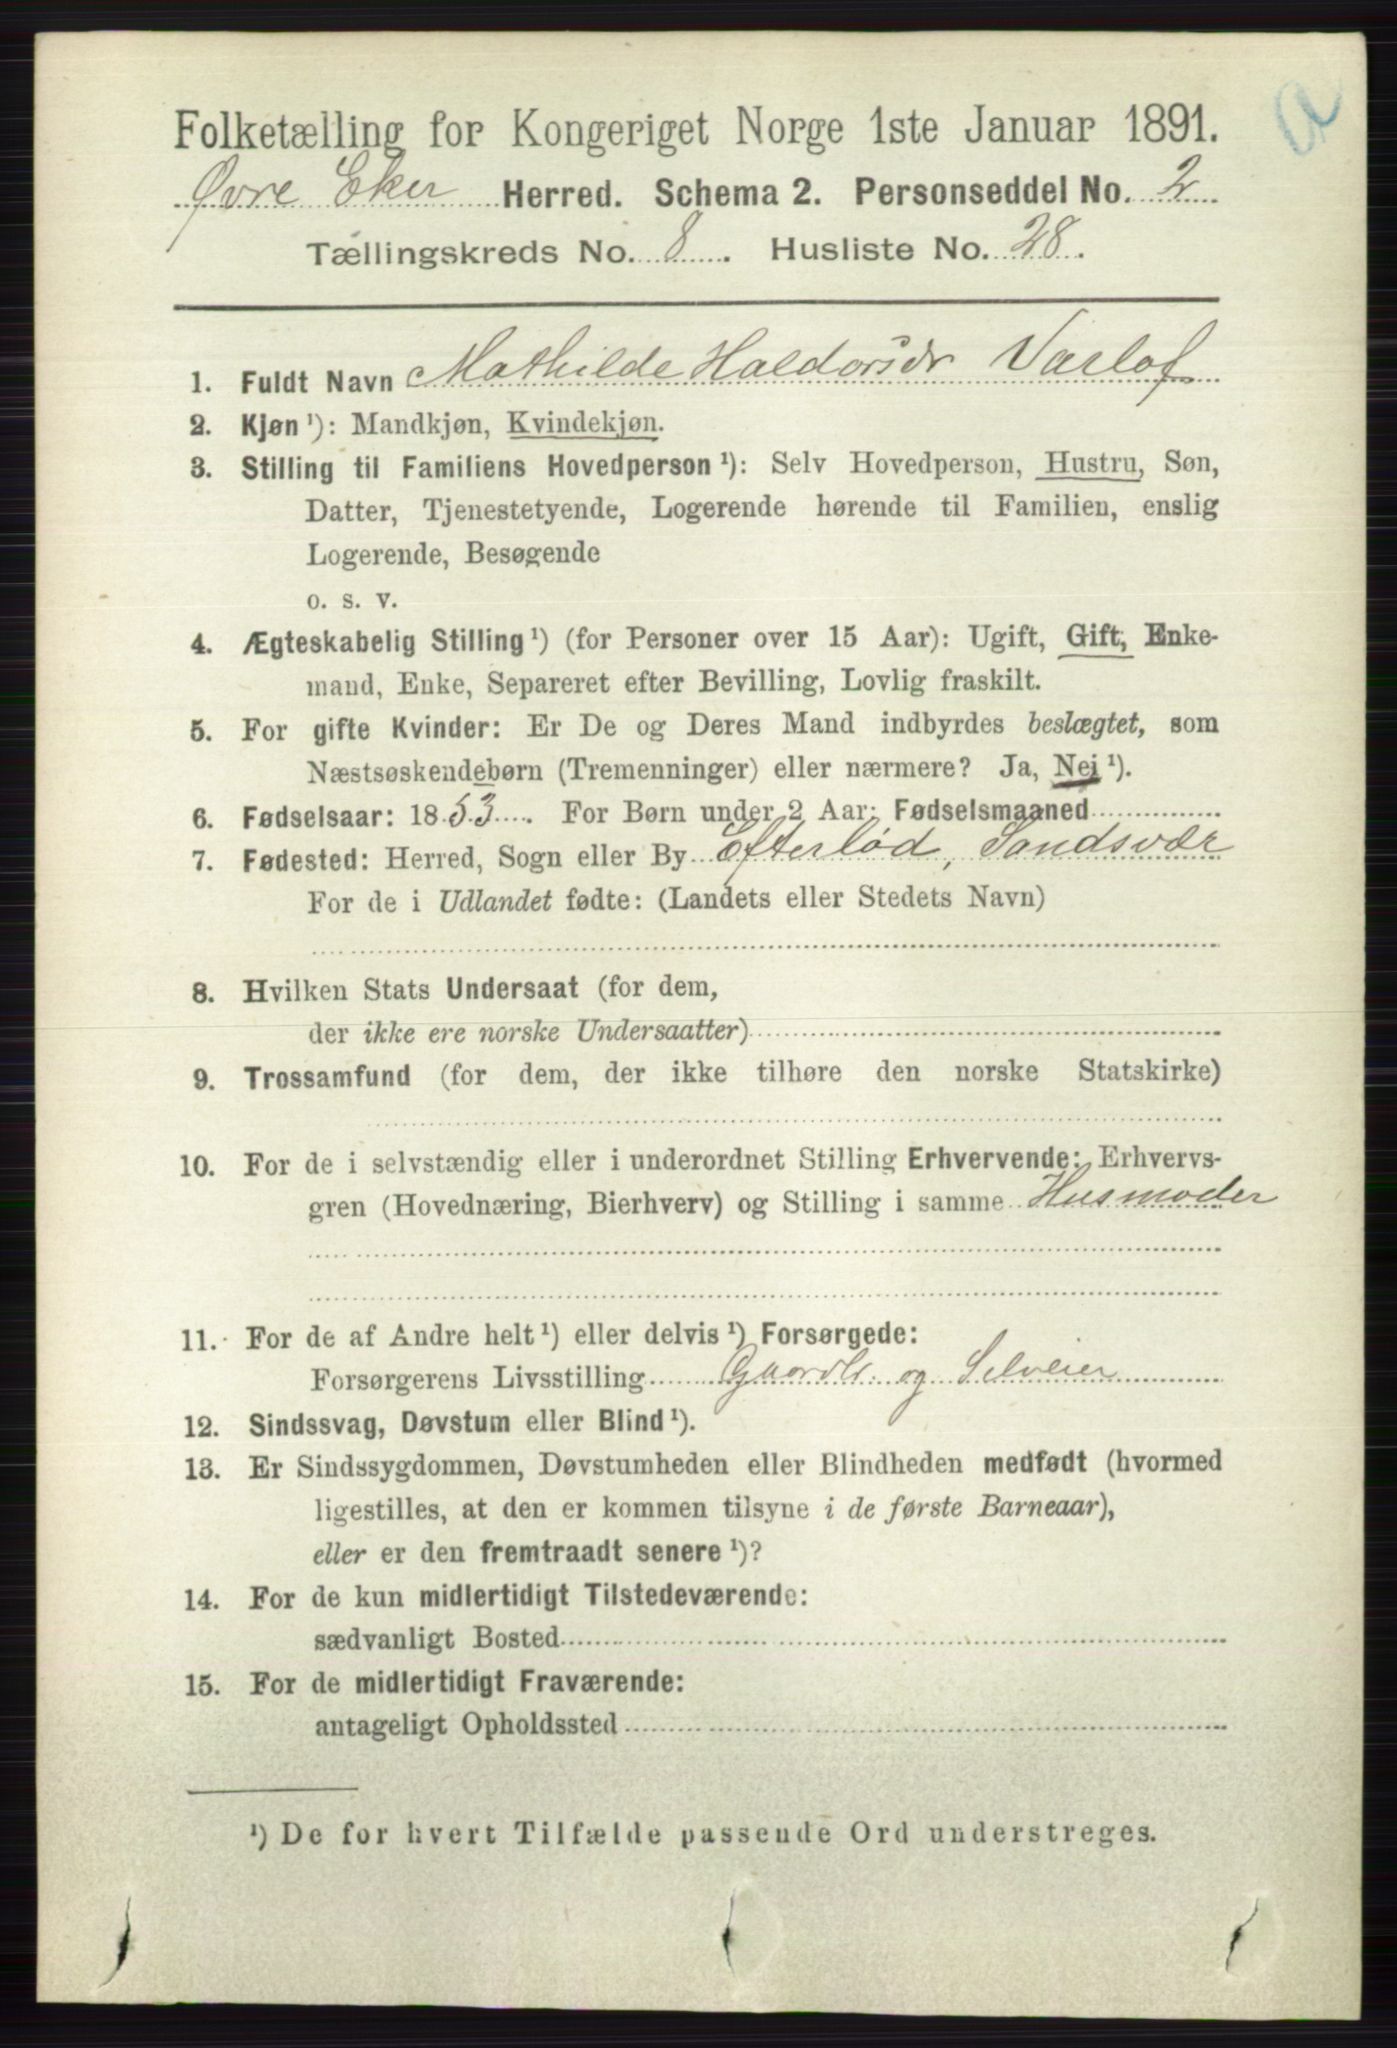 Folketælling for Kongeriget Norge 1ste Januar 1891.
a
Øvre Eker Herred. Schema 2. Personseddel No. 2
Tællingskreds No. 8. Husliste No. 28.
1. Fuldt Navn Mathilde Haldorsdr Varlof
2. Kjøn ¹): Mandkjøn, Kvindekjøn.
3. Stilling til Familiens Hovedperson ¹): Selv Hovedperson, Hustru, Søn,
Datter, Tjenestetyende, Logerende hørende til Familien, enslig
Logerende, Besøgende
o. s. v.
4. Ægteskabelig Stilling ¹) (for Personer over 15 Aar): Ugift, Gift, Enke-
mand, Enke, Separeret efter Bevilling, Lovlig fraskilt.
5. For gifte Kvinder: Er De og Deres Mand indbyrdes beslægtet, som
Næstsøskendebørn (Tremenninger) eller nærmere? Ja, Nei ¹).
6. Fødselsaar: 1853. For Børn under 2 Aar: Fødselsmaaned
7. Fødested: Herred, Sogn eller By Efterlød, Sandsvær
For de i Udlandet fødte: (Landets eller Stedets Navn)
8. Hvilken Stats Undersaat (for dem,
der ikke ere norske Undersaatter)
9. Trossamfund (for dem, der ikke tilhøre den norske Statskirke)
10. For de i selvstændig eller i underordnet Stilling Erhvervende: Erhvervs-
gren (Hovednæring, Bierhverv) og Stilling i samme Husmoder
11. For de af Andre helt ¹) eller delvis ¹) Forsørgede:
Forsørgerens Livsstilling Gaardb. og Selveier
12. Sindssvag, Døvstum eller Blind ¹).
13. Er Sindssygdommen, Døvstumheden eller Blindheden medfødt (hvormed
ligestilles, at den er kommen tilsyne i de første Barneaar),
eller er den fremtraadt senere ¹)?
14. For de kun midlertidigt Tilstedeværende:
sædvanligt Bosted
15. For de midlertidigt Fraværende:
antageligt Opholdssted
¹) De for hvert Tilfælde passende Ord understreges.